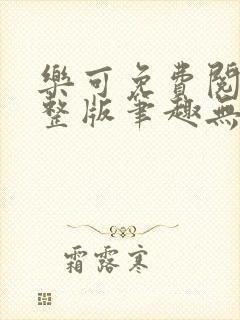 樂可免費閱
整版筆趣無
霜露寒